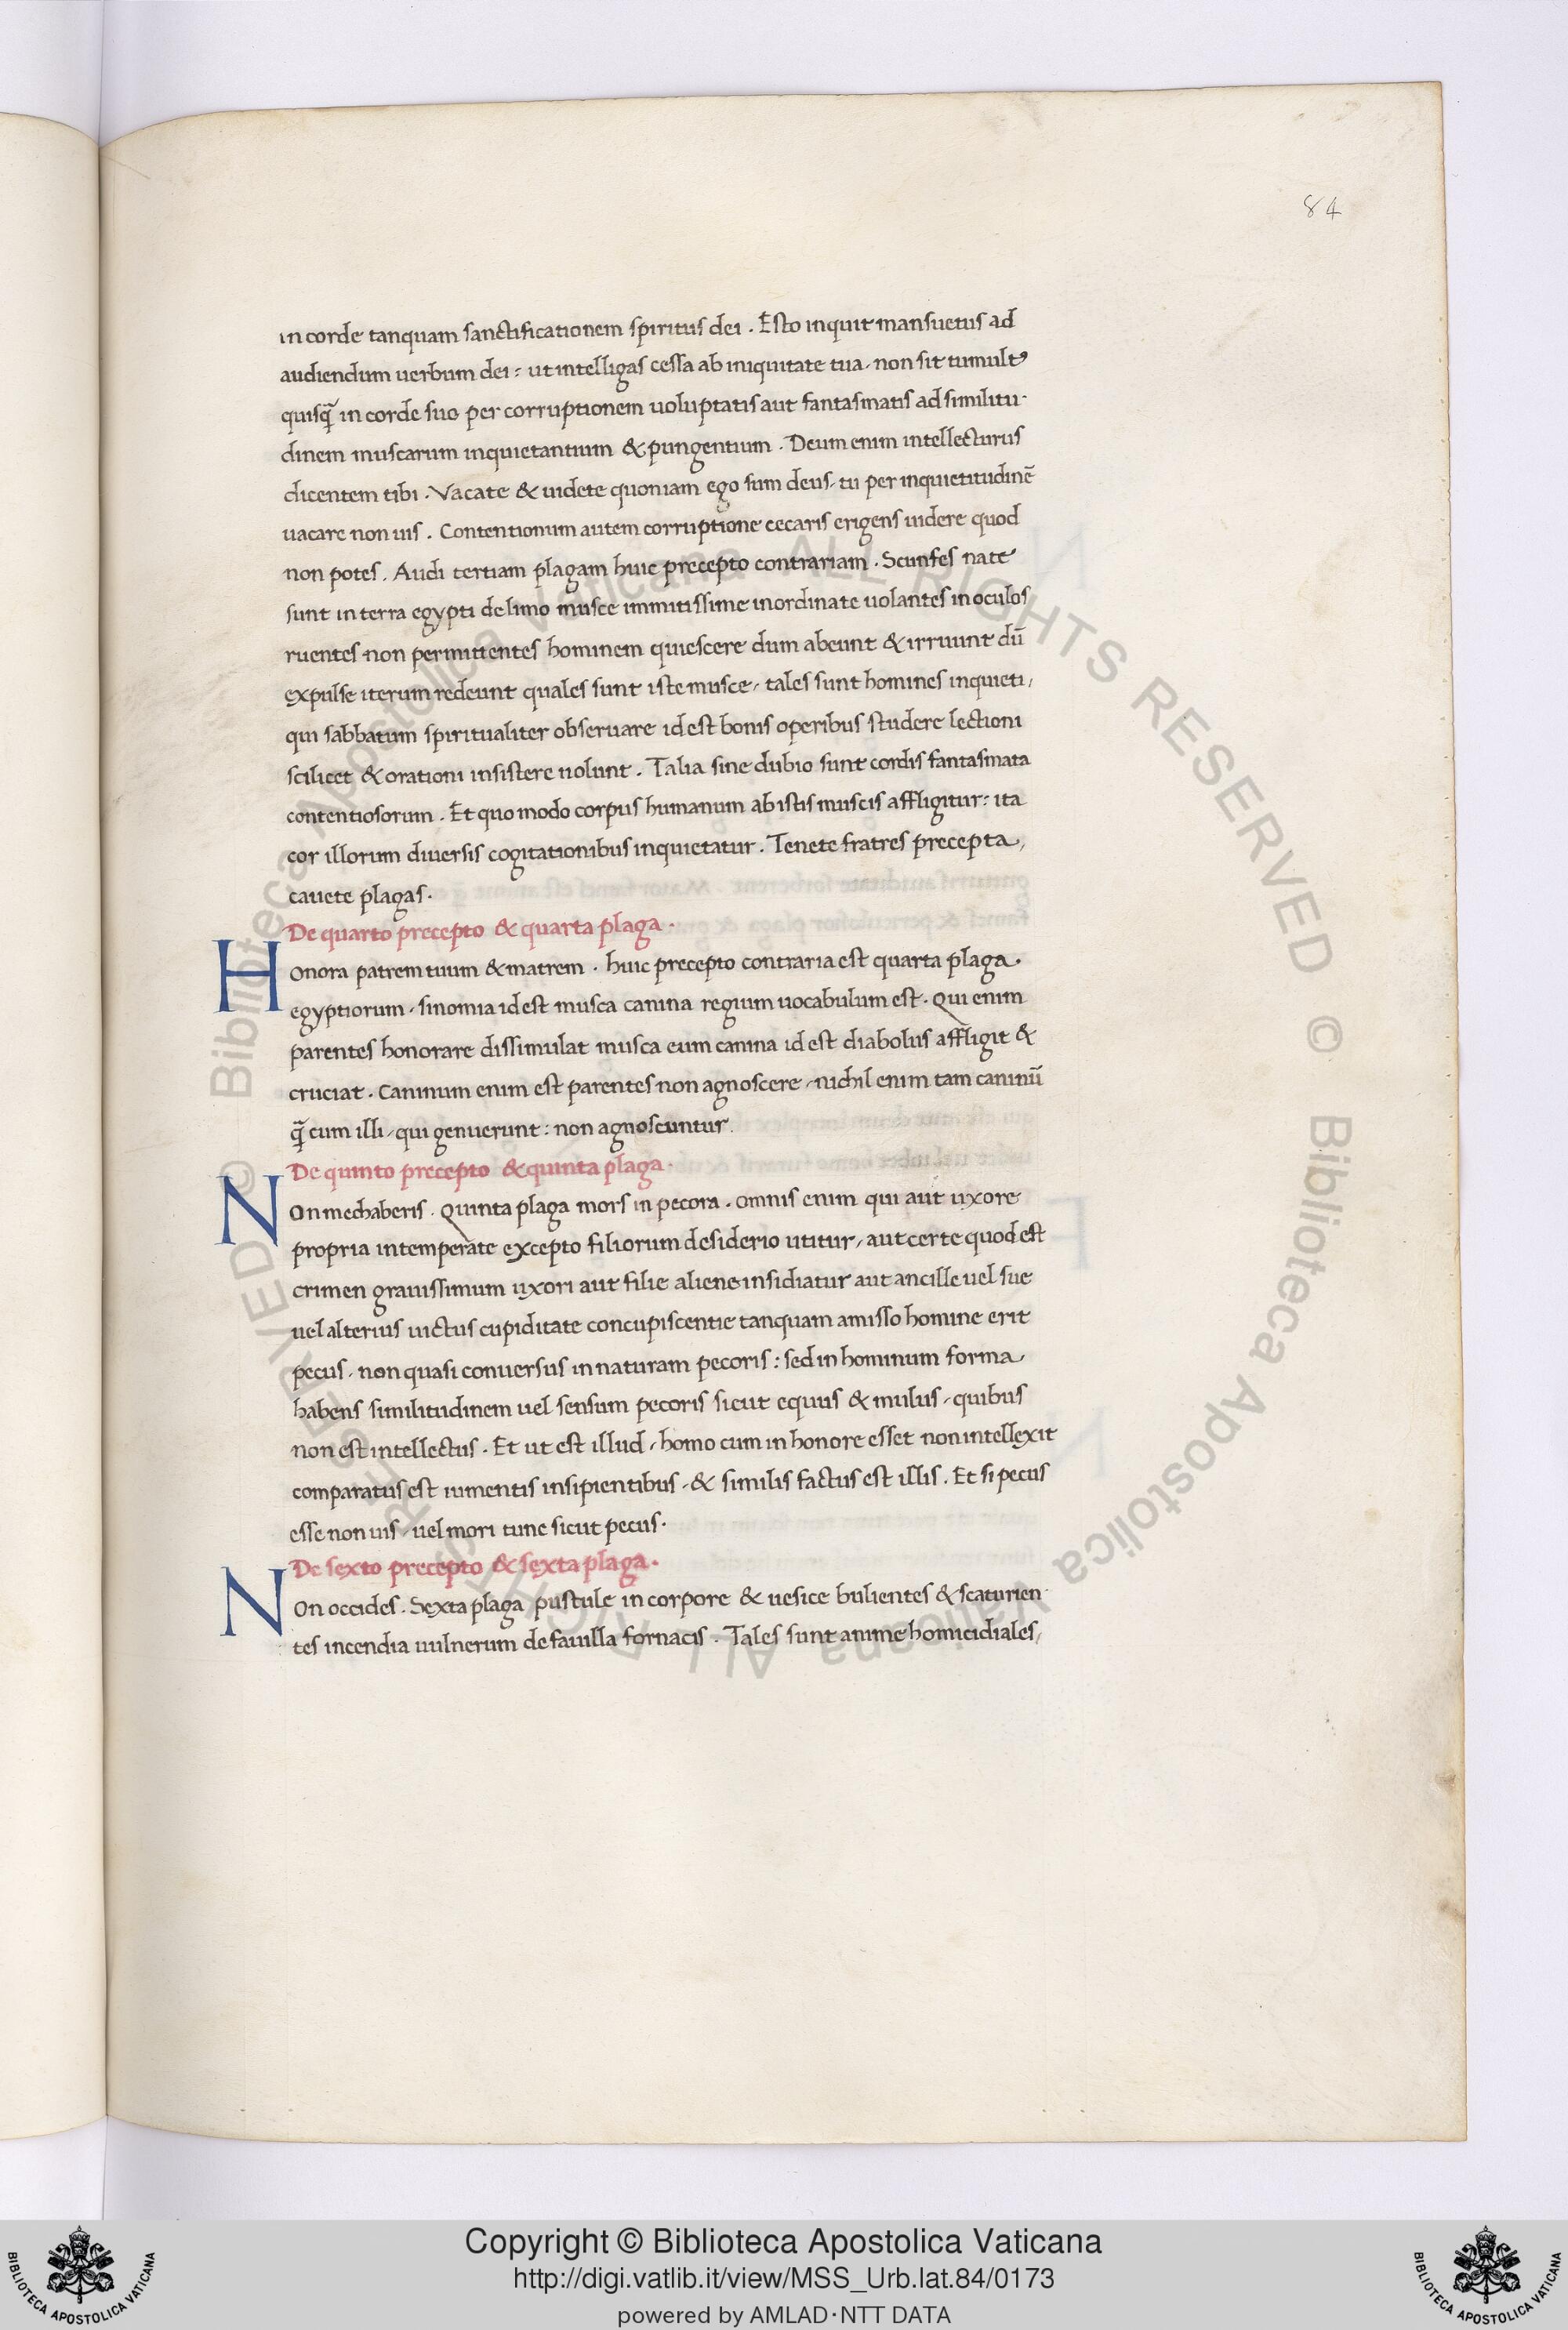 84
in corde tanquam sanctificationem spiritus dei . Esto inquit mansuetus ad
audiendum uerbum dei : ut intelligas cessa ab iniquitate tua , non sit tumultꝰ
quisq̃ in corde suo per corruptionem uoluptatis aut fantasmatis ad similitu-
dinem muscarum inquietantium & pungentium . Deum enim intellecturus
dicentem tibi . Vacate & uidete quoniam ego sum deus , tu per inquietitudinē
uacare non uis . Contentionum autem corruptione cecaris erigens uidere quod
non potes . Audi tertiam plagam huic precepto contrariam . Scinifes nate
sunt in terra egypti de limo musce immitissime inordinate uolantes in oculos
ruentes non permittentes hominem quiescere dum abeunt & irruunt dū
expulse iterum redeunt quales sunt iste musce , tales sunt homines inquieti ,
qui sabbatum spiritualiter obseruare id est bonis operibus studere lectioni
scilicet & orationi insistere nolunt . Talia sine dubio sunt cordis fantasmata
contentiosorum . Et quo modo corpus humanum ab istis muscis affligitur : ita
cor illorum diuersis cogitationibus inquietatur . Tenete fratres precepta ,
cauete plagas .
De quarto precepto & quarta plaga .
Honora patrem tuum & matrem . huic precepto contraria est quarta plaga .
egyptiorum , sinomia id est musca canina regium uocabulum est . Qui enim
parentes honorare dissimulat musca eum canina id est diabolus affligit &
cruciat . Caninum enim est parentes non agnoscere , nichil enim tam caninū
q̃ cum illi , qui genuerunt : non agnoscuntur .
De quinto precepto & quinta plaga .
Non mechaberis . Quinta plaga mors in pecora . Omnis enim qui aut uxore
propria intemperate excepto filiorum desiderio utitur , aut certe quod est
crimen grauissimum uxori aut filie aliene insidiatur aut ancille uel sue
uel alterius uictus cupiditate concupiscentie tanquam amisso homine erit
pecus , non quasi conuersus in naturam pecoris : sed in hominum forma ,
habens similitudinem uel sensum pecoris sicut equus & mulus , quibus
non est intellectus . Et ut est illud , homo cum in honore esset non intellexit
comparatus est iumentis insipientibus , & similis factus est illis . Et si pecus
esse non uis , uel mori tunc sicut pecus .
De sexto precepto & sexta plaga .
Non occides . Sexta plaga pustule in corpore & uesice bulientes & scaturien
tes incendia uulnerum de fauilla fornacis . Tales sunt anime homicidiales ,
© Biblioteca Apostolica Vaticana ALL RIGHTS RESERVED © Biblioteca Apostolica Vaticana ALL RIGHTS RESERVED
BIBLIOTECA APOSTOLICA VATICANA
Copyright © Biblioteca Apostolica Vaticana
http://digi.vatlib.it/view/MSS_Urb.lat.84/0173
powered by AMLAD·NTT DATA
BIBLIOTECA APOSTOLICA VATICANA